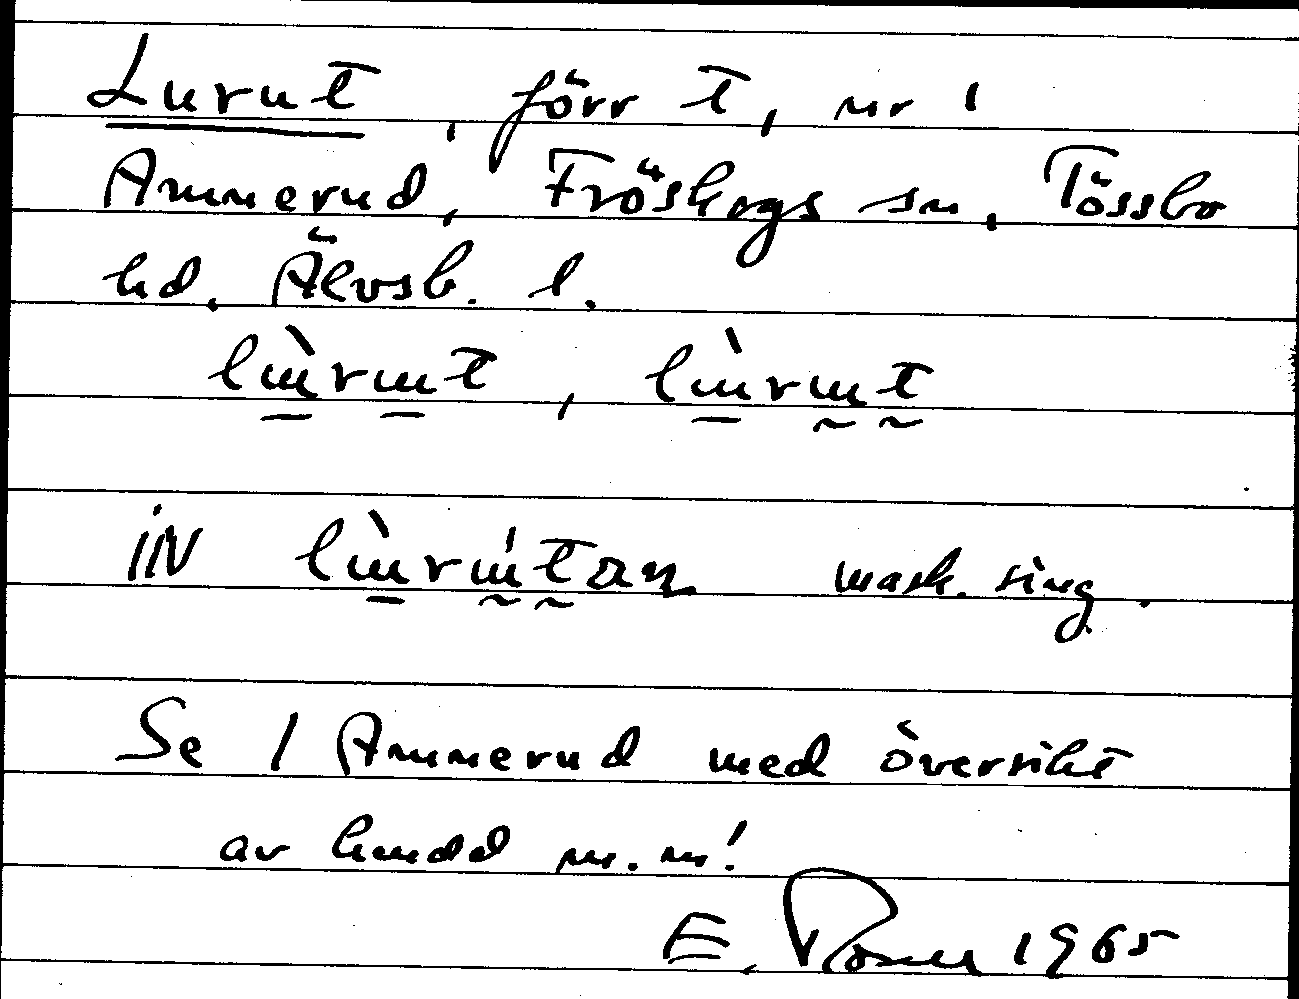 Lurut, förr t, nr 1
Ammerud, Fröskogs sn, Tössbo
hd. Älvsb. l.
lɯ̀rɯt, lɯ̀rɯt
IN lɯ̀rɯtan mask. sing.
Se 1 Ammerud med översikt
av m.m!
E. 1965